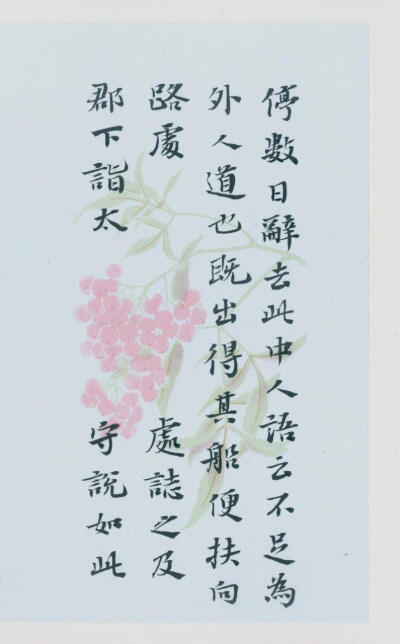 停數日辭去此中人語云不足為
外人道也既出得其船便扶向
路處 處誌之及
郡下詣太 守說如此